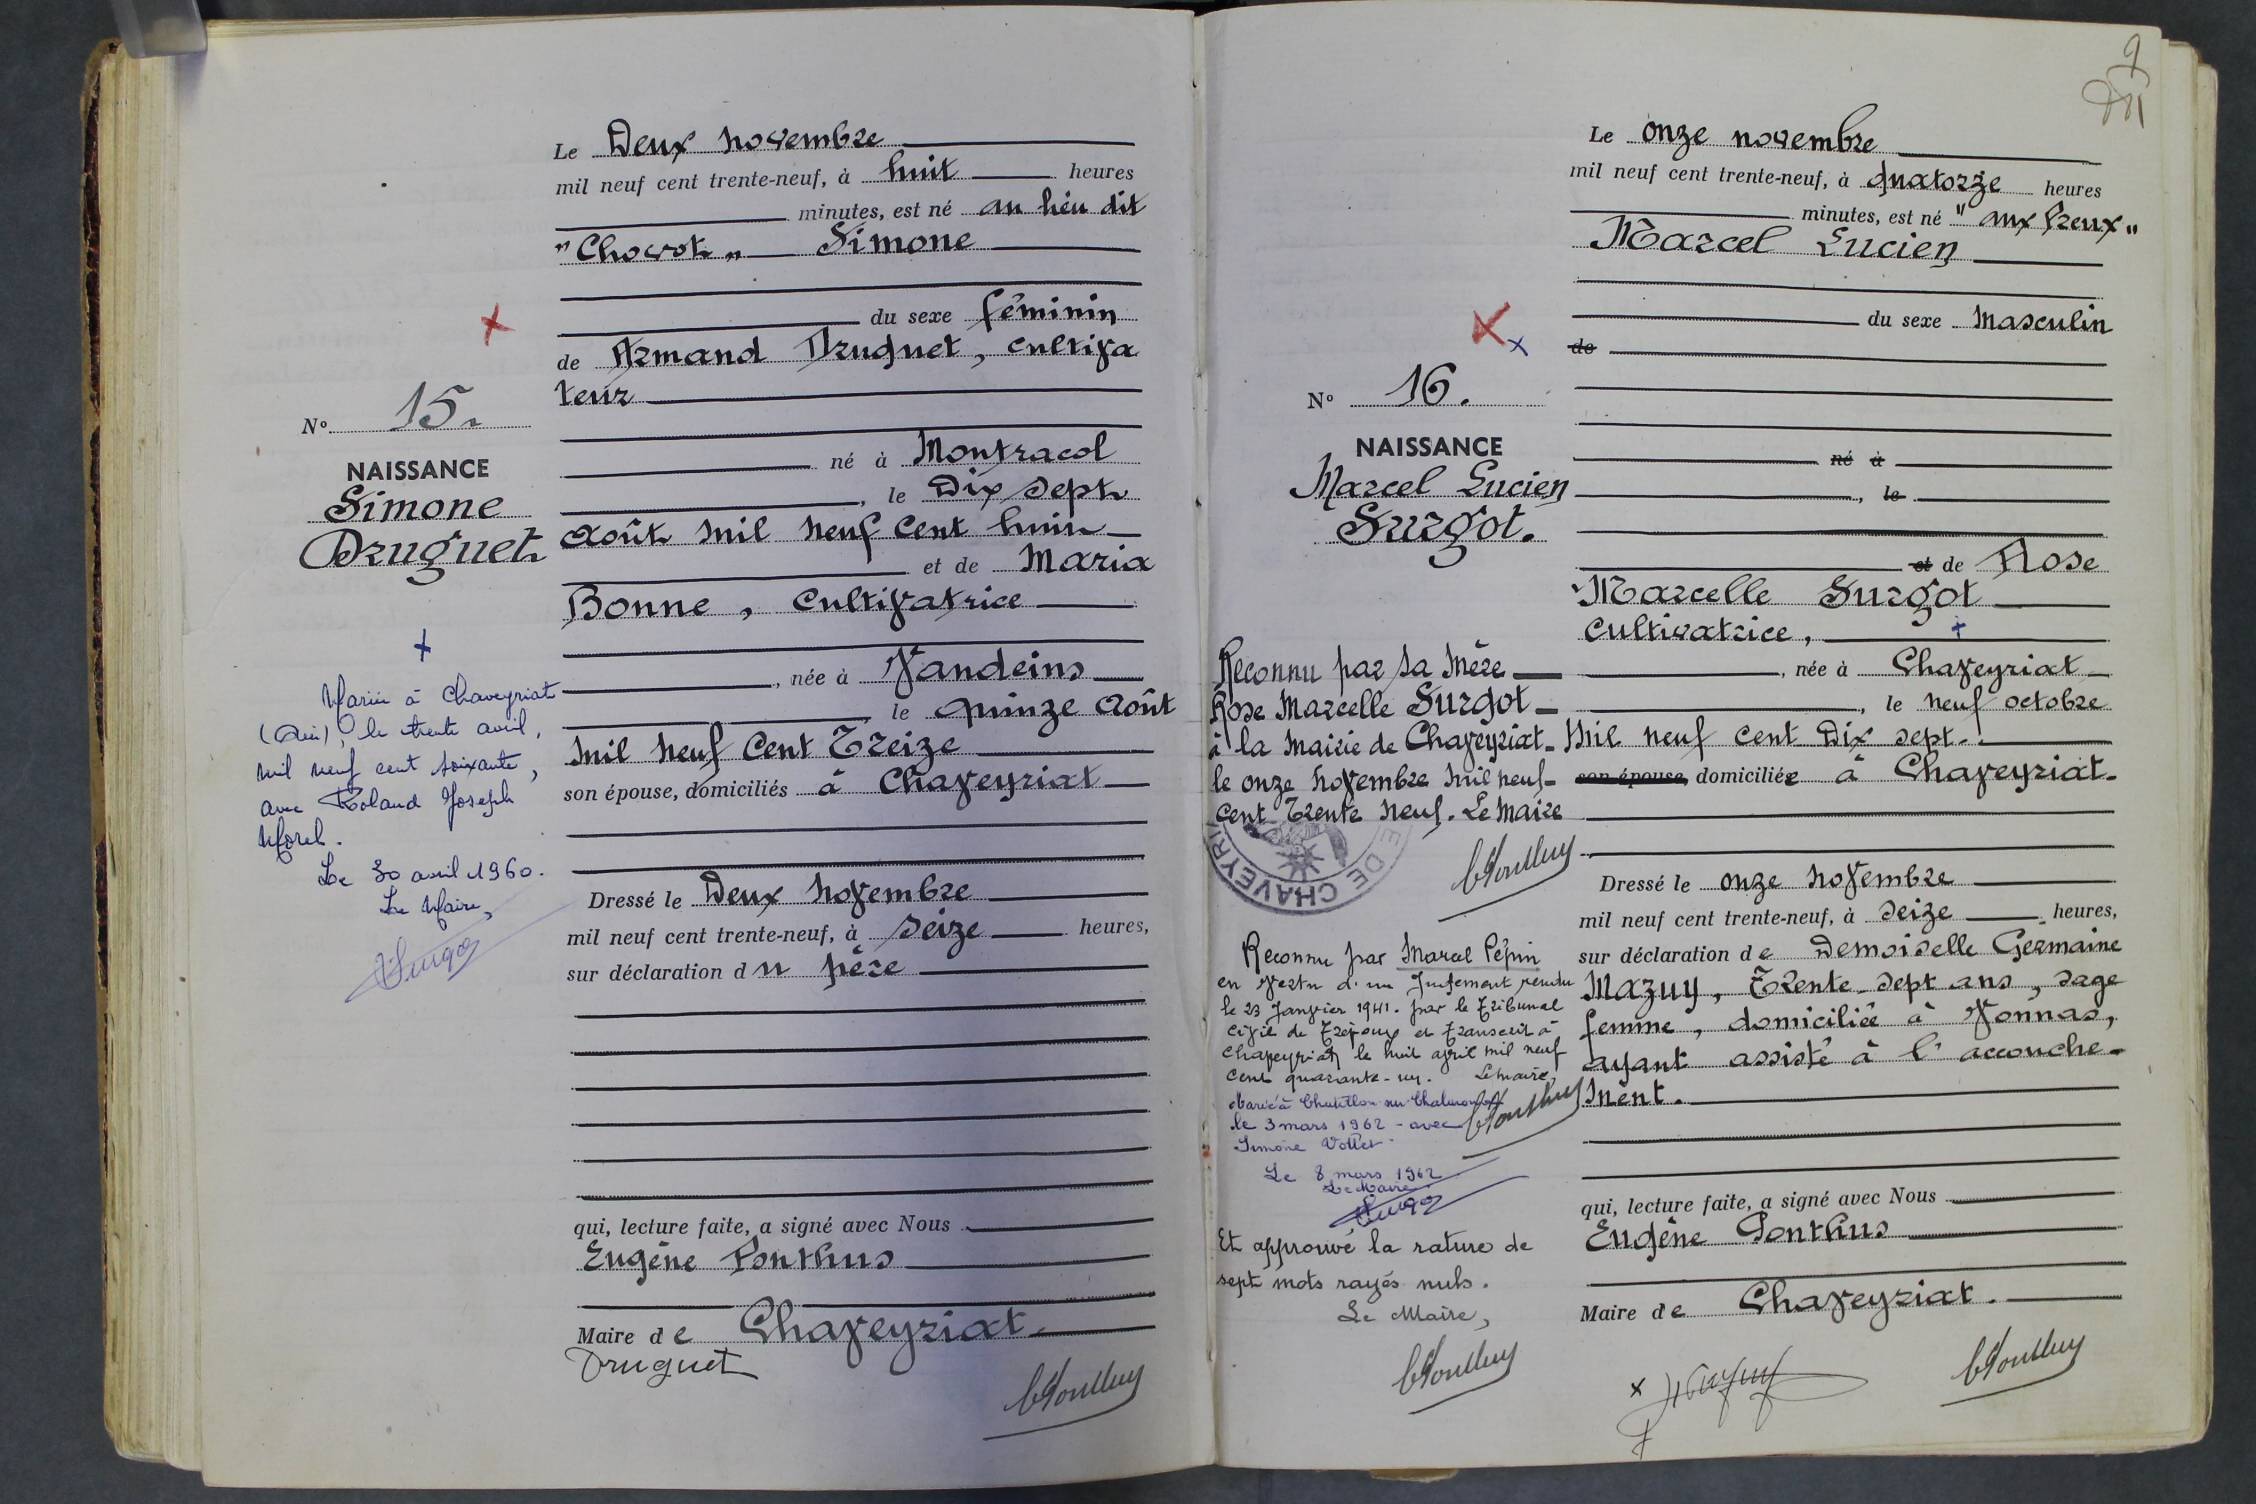 Le Deux novembre
mil neuf cent trente-neuf, à huit heures
minutes, est né au lieu dit
"Chovot" Simone
du sexe féminin
de Armand Druguet, cultiva
teur
né à Montracol
, le Dix sept
Août mil neuf cent huit
et de Maria
Bonne, cultivatrice
, née à Vandeins
le quinze Août
mil neuf cent Treize
son épouse, domiciliés à Chaveyriat
Dressé le Deux novembre
mil neuf cent trente-neuf, à seize heures,
sur déclaration du père
qui, lecture faite, a signé avec Nous
Eugène Ponthus
Maire de Chaveyriat.
Druguet
No 15
NAISSANCE
Simone
Druguet
Mariée à Chaveyriat
(Ain), le trente avril,
mil neuf cent soixante,
avec Roland Joseph
Morel.
Le 30 avril 1960.
Le Maire,
9
Le onze novembre
mil neuf cent trente-neuf, à quatorze heures
minutes, est né "aux Greux"
Marcel Lucien
du sexe Masculin
de
né à
, le
et de Rose
Marcelle Surgot
cultivatrice,
, née à Chaveyriat
, le neuf octobre
mil neuf cent Dix sept.
son épouse, domiciliée à Chaveyriat.
Dressé le onze novembre
mil neuf cent trente-neuf, à seize heures,
sur déclaration de Demoiselle Germaine
Mazuy, Trente-sept ans, sage
femme, domiciliée à Vonnas,
ayant assisté à l'accouche-
ment.
qui, lecture faite, a signé avec Nous
Eugène Ponthus
Maire de Chaveyriat.
No 16.
NAISSANCE
Marcel Lucien
Surgot.
Reconnu par sa Mère
Rose Marcelle Surgot
à la Mairie de Chaveyriat
le onze novembre mil neuf
cent Trente neuf. Le Maire
E DE CHAVEYRI
Reconnu par Marcel Pépin
en vertu d'un Jugement rendu
le 23 Janvier 1941. par le Tribunal
civil de Trévoux et transcrit à
Chaveyriat le huit avril mil neuf
cent quarante-un. Le Maire,
Marié à Chatillon sur Chalaronne
le 3 mars 1962 - avec
Simone Vollet
Le 8 mars 1962
Le Maire
Et approuvé la rature de
sept mots rayés nuls.
Le Maire,